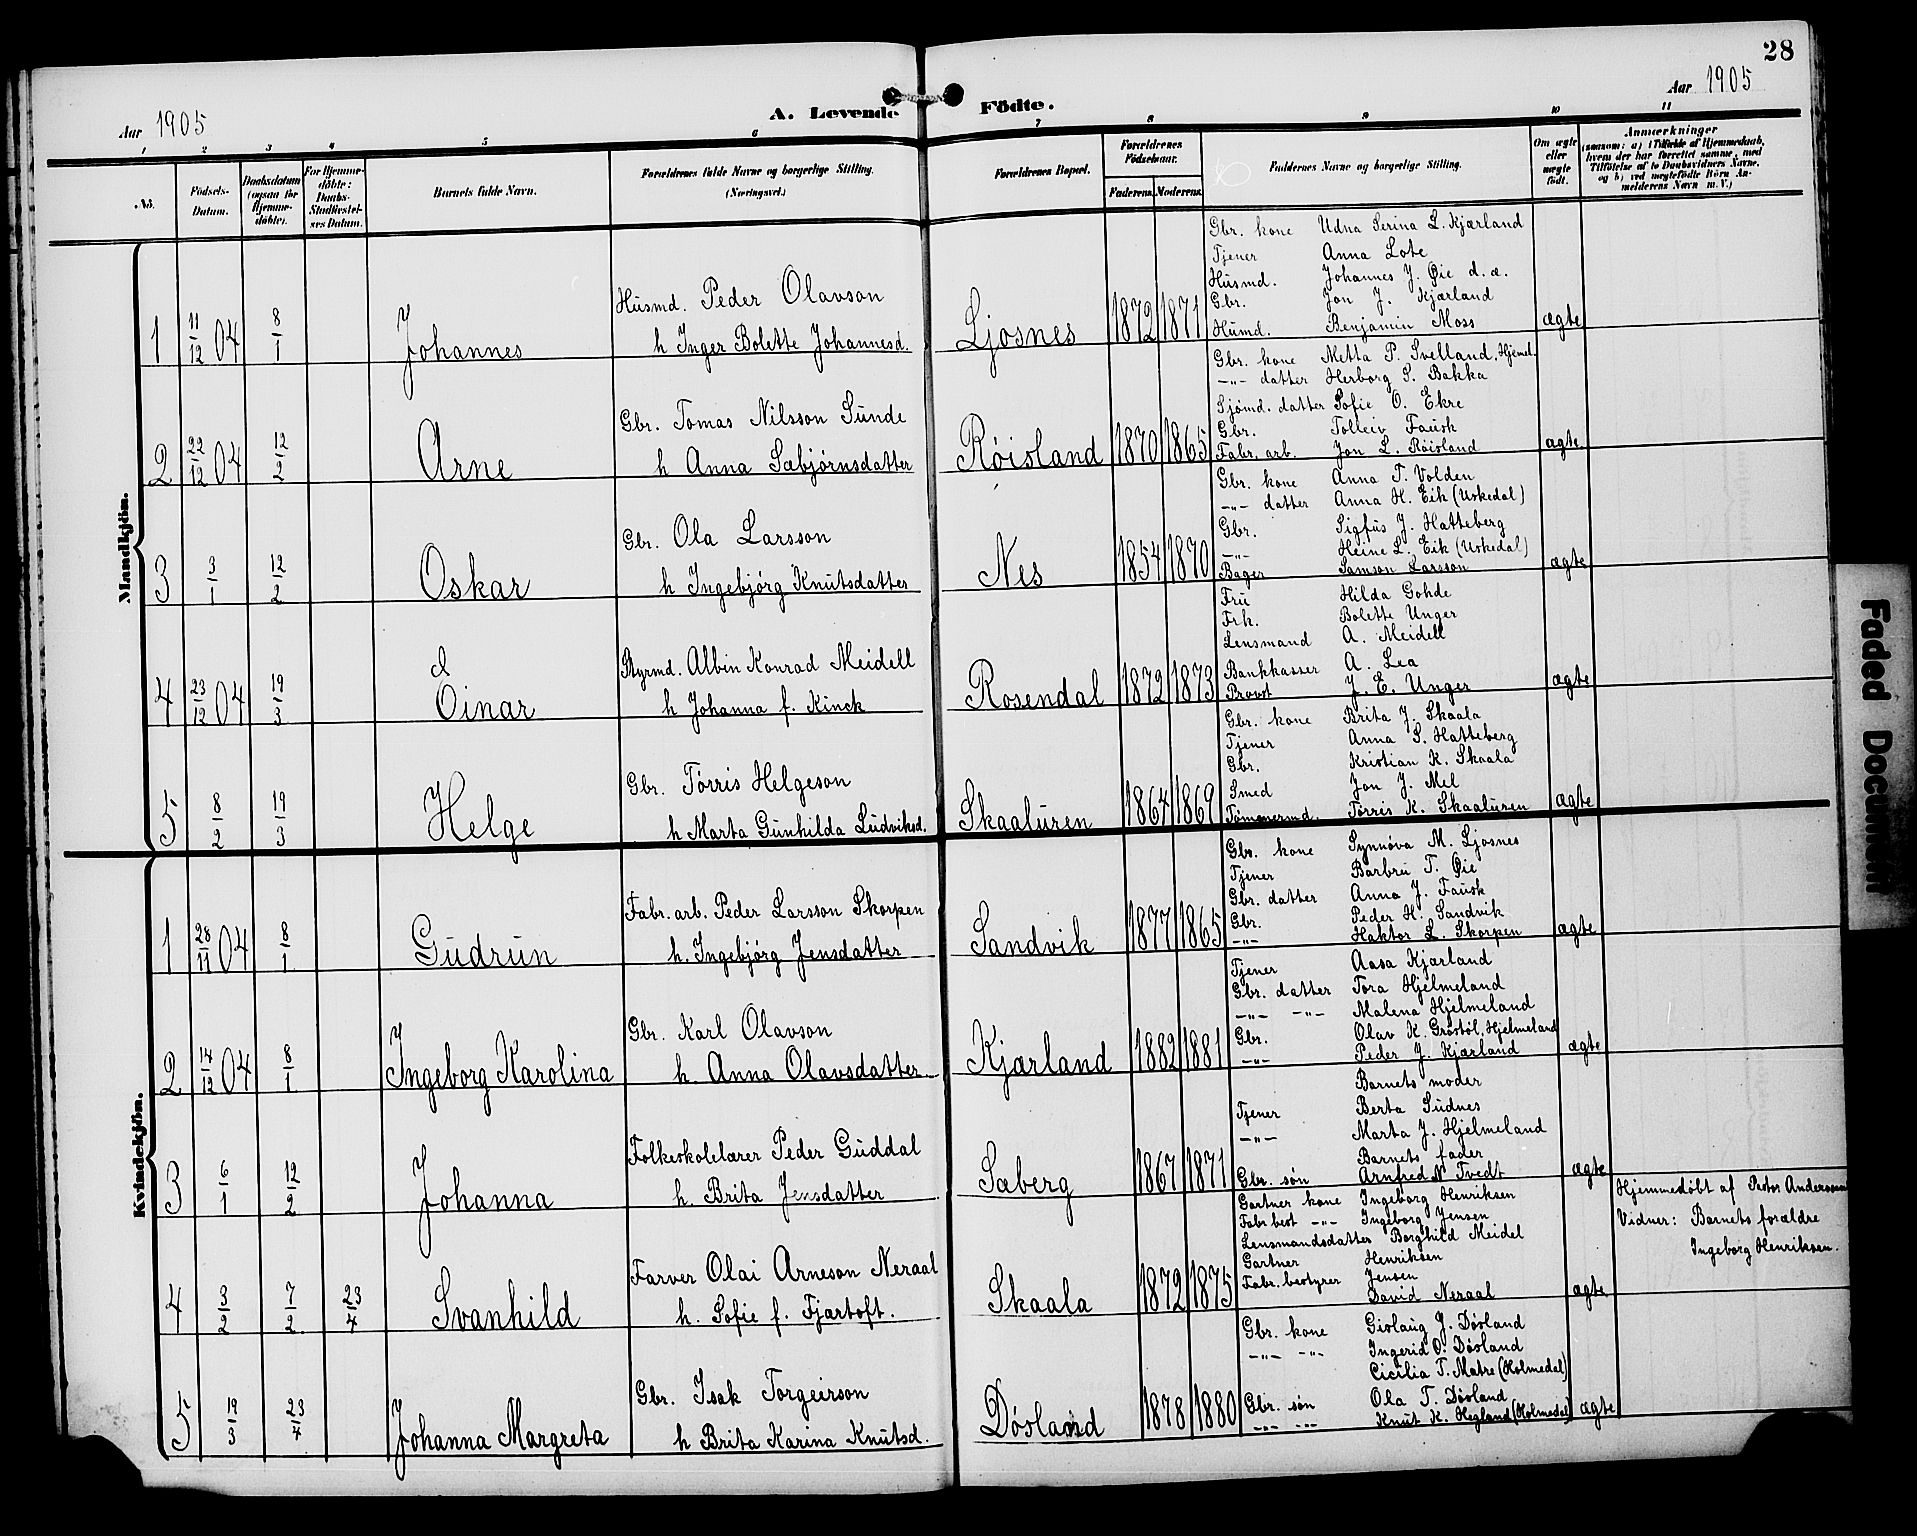 28
Aar 1905
A. Levende Födte.
Aar 1905
1 2 3 4 5 6 7 8 9 10 11
No.
Födsels-Datum.
Daabsdatum (ogsaa for Hjemme-döbte).
For Hjemme-döbte: Daabs-Stadfæstel-ses Datum.
Barnets fulde Navn.
Forældrenes fulde Navne og borgerlige Stilling. (Næringsvei.)
Forældrenes Bopæl.
Forældrenes Födselsaar.
Faderens. Moderens.
Faddernes Navne og borgerlige Stilling.
Om ægte eller uægte født.
Anmærkninger
(saasom: a) i Tilfælde af Hjemmedaab, hvem der har forrettet samme, med Tilföielse af to Daabsvidners Navne, og b) ved uægtefödte Börn An-melderens Navn m. V.)
Mandkjön.
1 11/12 04 8/1 Johannes
Husmd. Peder Olavson
h Inger Bolette Johannesd.
Ljosnes 1872 1871
Gbr. kone Udna Serina L. Kjærland
Tjener Anna Lote
Husmd. Johannes J. Øie d. æ.
Gbr. Jon J. Kjærland
Humd. Benjamin Moss
ægte
2 22/12 04 12/2 Arne
Gbr. Tomas Nilsson Sunde
h Anna Sæbjørnsdatter
Røisland 1870 1865
Gbr. kone Metta P. Svelland, Hjemel.
-"- datter Herborg S. Bakka
Sjømd. datter Sofie O. Ekre
Gbr. Tolleiv Fausk
Fabr. arb. Jon L. Røisland
ægte
3 3/1 12/2 Oskar
Gbr. Ola Larsson
h Ingebjørg Knutsdatter
Nes 1854 1870
Gbr. kone Anna T. Volden
-"- datter Anna H. Eik (Uskedal)
Gbr. Sigfus J. Hatteberg
-"- Heine L. Eik (Uskedal)
Bager Samson Larsson
ægte
4 23/12 04 19/3 Einar
Styrmd. Albin Konrad Meidell
h Johanna f. Kinck
Rosendal 1872 1873
Fru Hilda Gohde
Frk. Bolette Unger
Lensmand A. Meidell
Bankkasser A. Lea
Provst J. E. Unger
ægte
5 8/2 19/3 Helge
Gbr. Tørris Helgeson
h Marta Gunhilda Ludviksd.
Skaaluren 1864 1869
Gbr. kone Brita J. Skaala
Tjener Anna S. Hatteberg
Gbr. Kristian K. Skaala
Smed Jon J. Mel
Tømmermd. Tørris K. Skaaluren
ægte
Kvindekjön.
1 28/11 04 8/1 Gudrun
Fabr. arb. Peder Larsson Skorpen
h. Ingebjørg Jensdatter
Sandvik 1877 1865
Gbr. kone Synnøva M. Ljosnes
Tjener Barbru T. Øie
Gbr. datter Anna J. Fausk
Gbr. Peder H. Sandvik
-"- Haktor L. Skorpen
ægte
2 14/12 04 8/1 Ingeborg Karolina
Gbr. Karl Olavson
h. Anna Olavsdatter
Kjærland 1882 1881
Tjener Aasa Kjærland
Gbr. datter Tora Hjelmeland
-"- -"- Malena Hjelmeland
Gbr. Olav K. Grostøl, Hjelmeland
-"- Peder J. Kjærland
ægte
3 6/1 12/2 Johanna
Folkeskolelærer Peder Guddal
h. Brita Jensdatter
Sæberg 1867 1871
Barnets moder
Tjener Berta Sudnes
-"- Marta J. Hjelmeland
Barnets fader
Gbr. søn Arnfred N Tvedt
ægte
4 3/2 7/2 23/4 Svanhild
Farver Olai Arneson Neraal
h. Sofie f. Fjærtoft.
Skaala 1872 1875
Gartner kone Ingeborg Henriksen
Fabr best -"- Ingeborg Jensen
Lensmandsdatter Borghild Meidel
Gartner Henriksen
Fabr. bestyrer Jensen
David Neraal
ægte
Hjemmedøbt af Pastor Anderssen
Vidner: Barnets forældre
Ingeborg Henriksen.
5 19/3 23/4 Johanna Margreta
Gbr. Isak Torgeirson
h Brita Karina Knutsd.
Døsland 1878 1880
Gbr. kone Gislaug J. Døsland
-"- -"- Ingerid O. Døsland
Cicilia T. Matre (Holmedal)
Gbr. søn Ola T. Døsland
-"- -"- Knut K. Hegland (Holmedal)
ægte
Faded Document